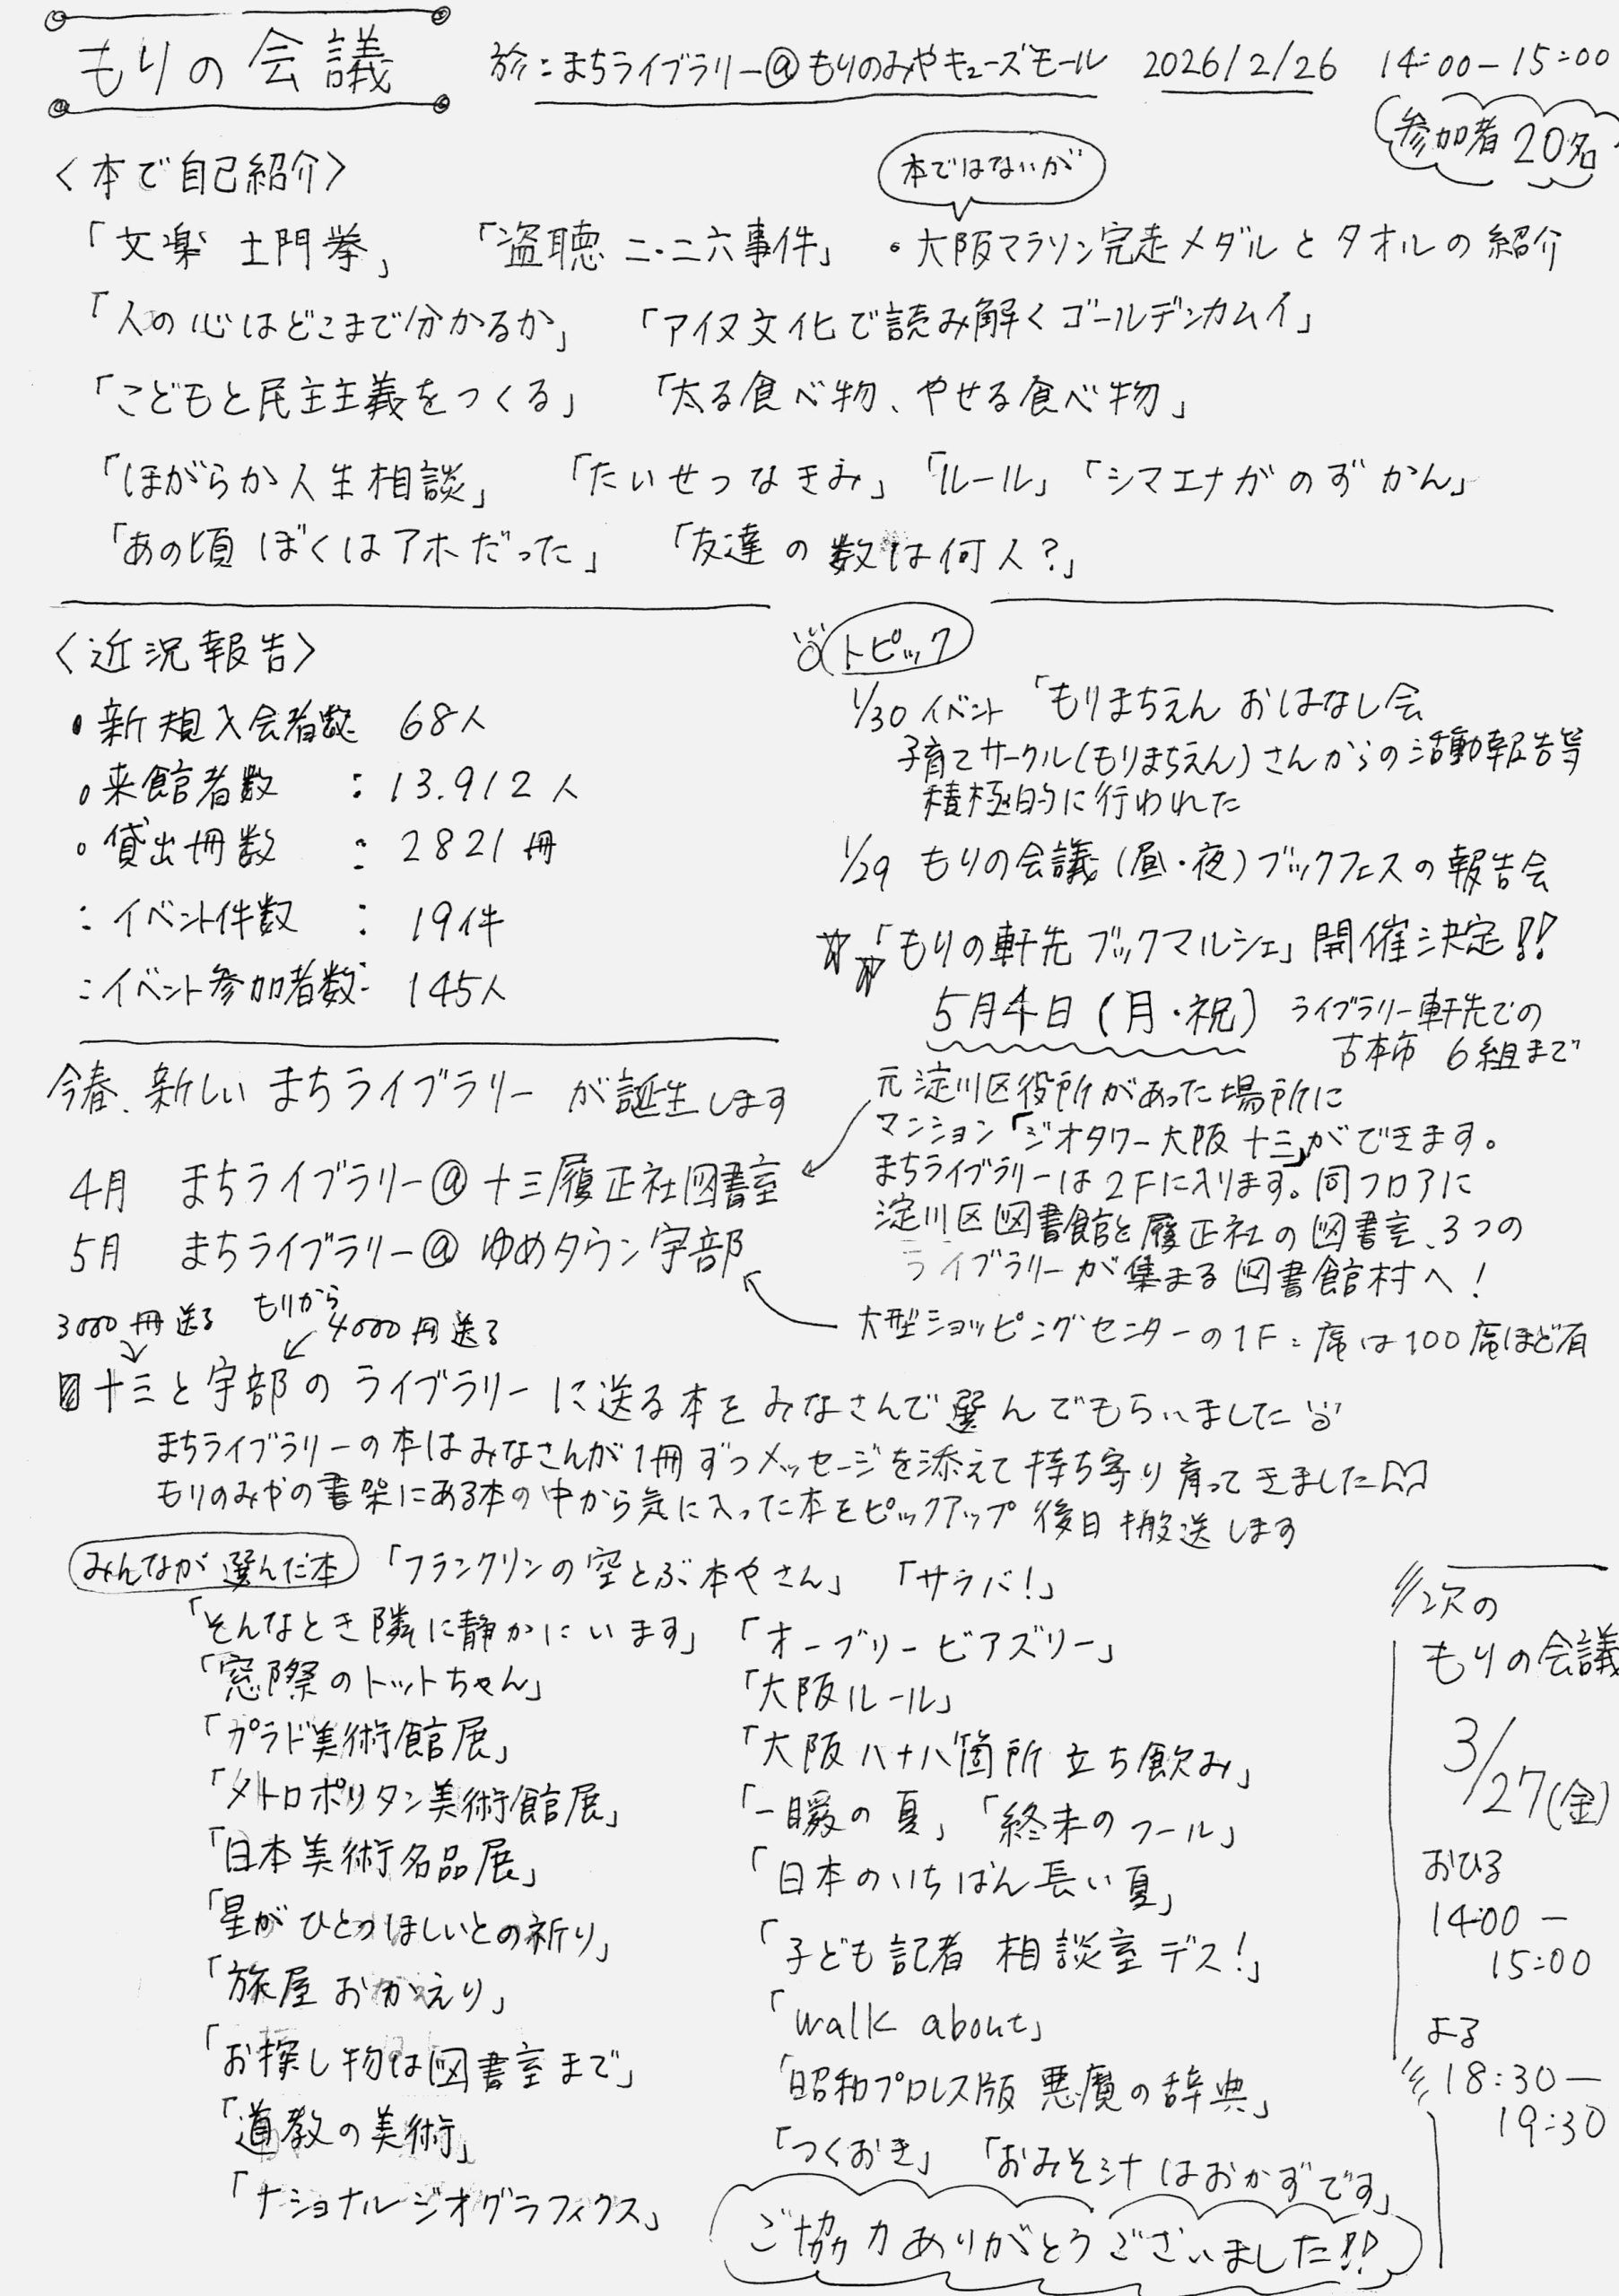 もりの会議
於：まちライブラリー@もりのみやキューズモール 2026/2/26 14:00-15:00
参加者 20名
〈本で自己紹介〉
本ではないが
「文楽 土門拳」 「盗聴 二・二六事件」 ・大阪マラソン完走メダルとタオルの紹介
「人の心はどこまで分かるか」 「アイヌ文化で読み解くゴールデンカムイ」
「こどもと民主主義をつくる」 「太る食べ物、やせる食べ物」
「ほがらか人生相談」 「たいせつなきみ」「ルール」「シマエナガのずかん」
「あの頃ぼくはアホだった」 「友達の数は何人？」
〈近況報告〉
・新規入会者数 68人
・来館者数 ：13.912人
・貸出冊数 ：2821冊
：イベント件数 ：19件
：イベント参加者数：145人
トピック
1/30 イベント「もりまちえん おはなし会
子育てサークル(もりまちえん)さんからの活動報告等
積極的に行われた
1/29 もりの会議(昼・夜)ブックフェスの報告会
☆☆「もりの軒先ブックマルシェ」開催決定!!
5月4日(月・祝) ライブラリー軒先での
古本市 6組まで
今春、新しいまちライブラリーが誕生します
4月 まちライブラリー@十三履正社図書室
5月 まちライブラリー@ゆめタウン宇部
元淀川区役所があった場所に
マンション「ジオタワー大阪十三」ができます。
まちライブラリーは2Fに入ります。同フロアに
淀川区図書館と履正社の図書室、3つの
ライブラリーが集まる図書館村へ！
大型ショッピングセンターの1F：席は100席ほど有
3000冊送る もりから 4000冊送る
十三と宇部のライブラリーに送る本をみなさんで選んでもらいました
まちライブラリーの本はみなさんが1冊ずつメッセージを添えて持ち寄り育ってきました
もりのみやの書架にある本の中から気に入った本をピックアップ 後日搬送します
みんなが選んだ本 「フランクリンの空とぶ本やさん」 「サラバ！」
「そんなとき隣に静かにいます」 「オーブリービアズリー」
「窓際のトットちゃん」 「大阪ルール」
「プラド美術館展」 「大阪八十八箇所 立ち飲み」
「メトロポリタン美術館展」 「一瞬の夏」「終末のフール」
「日本美術名品展」 「日本のいちばん長い夏」
「星がひとつほしいとの祈り」 「子ども記者 相談室デス！」
「旅屋おかえり」 「walk about」
「お探し物は図書室まで」 「昭和プロレス版 悪魔の辞典」
「道教の美術」 「つくおき」 「おみそ汁はおかずです」
「ナショナルジオグラフィクス」
ご協力ありがとうございました!!
次の
もりの会議
3/27(金)
おひる
14:00-
15:00
よる
18:30-
19:30